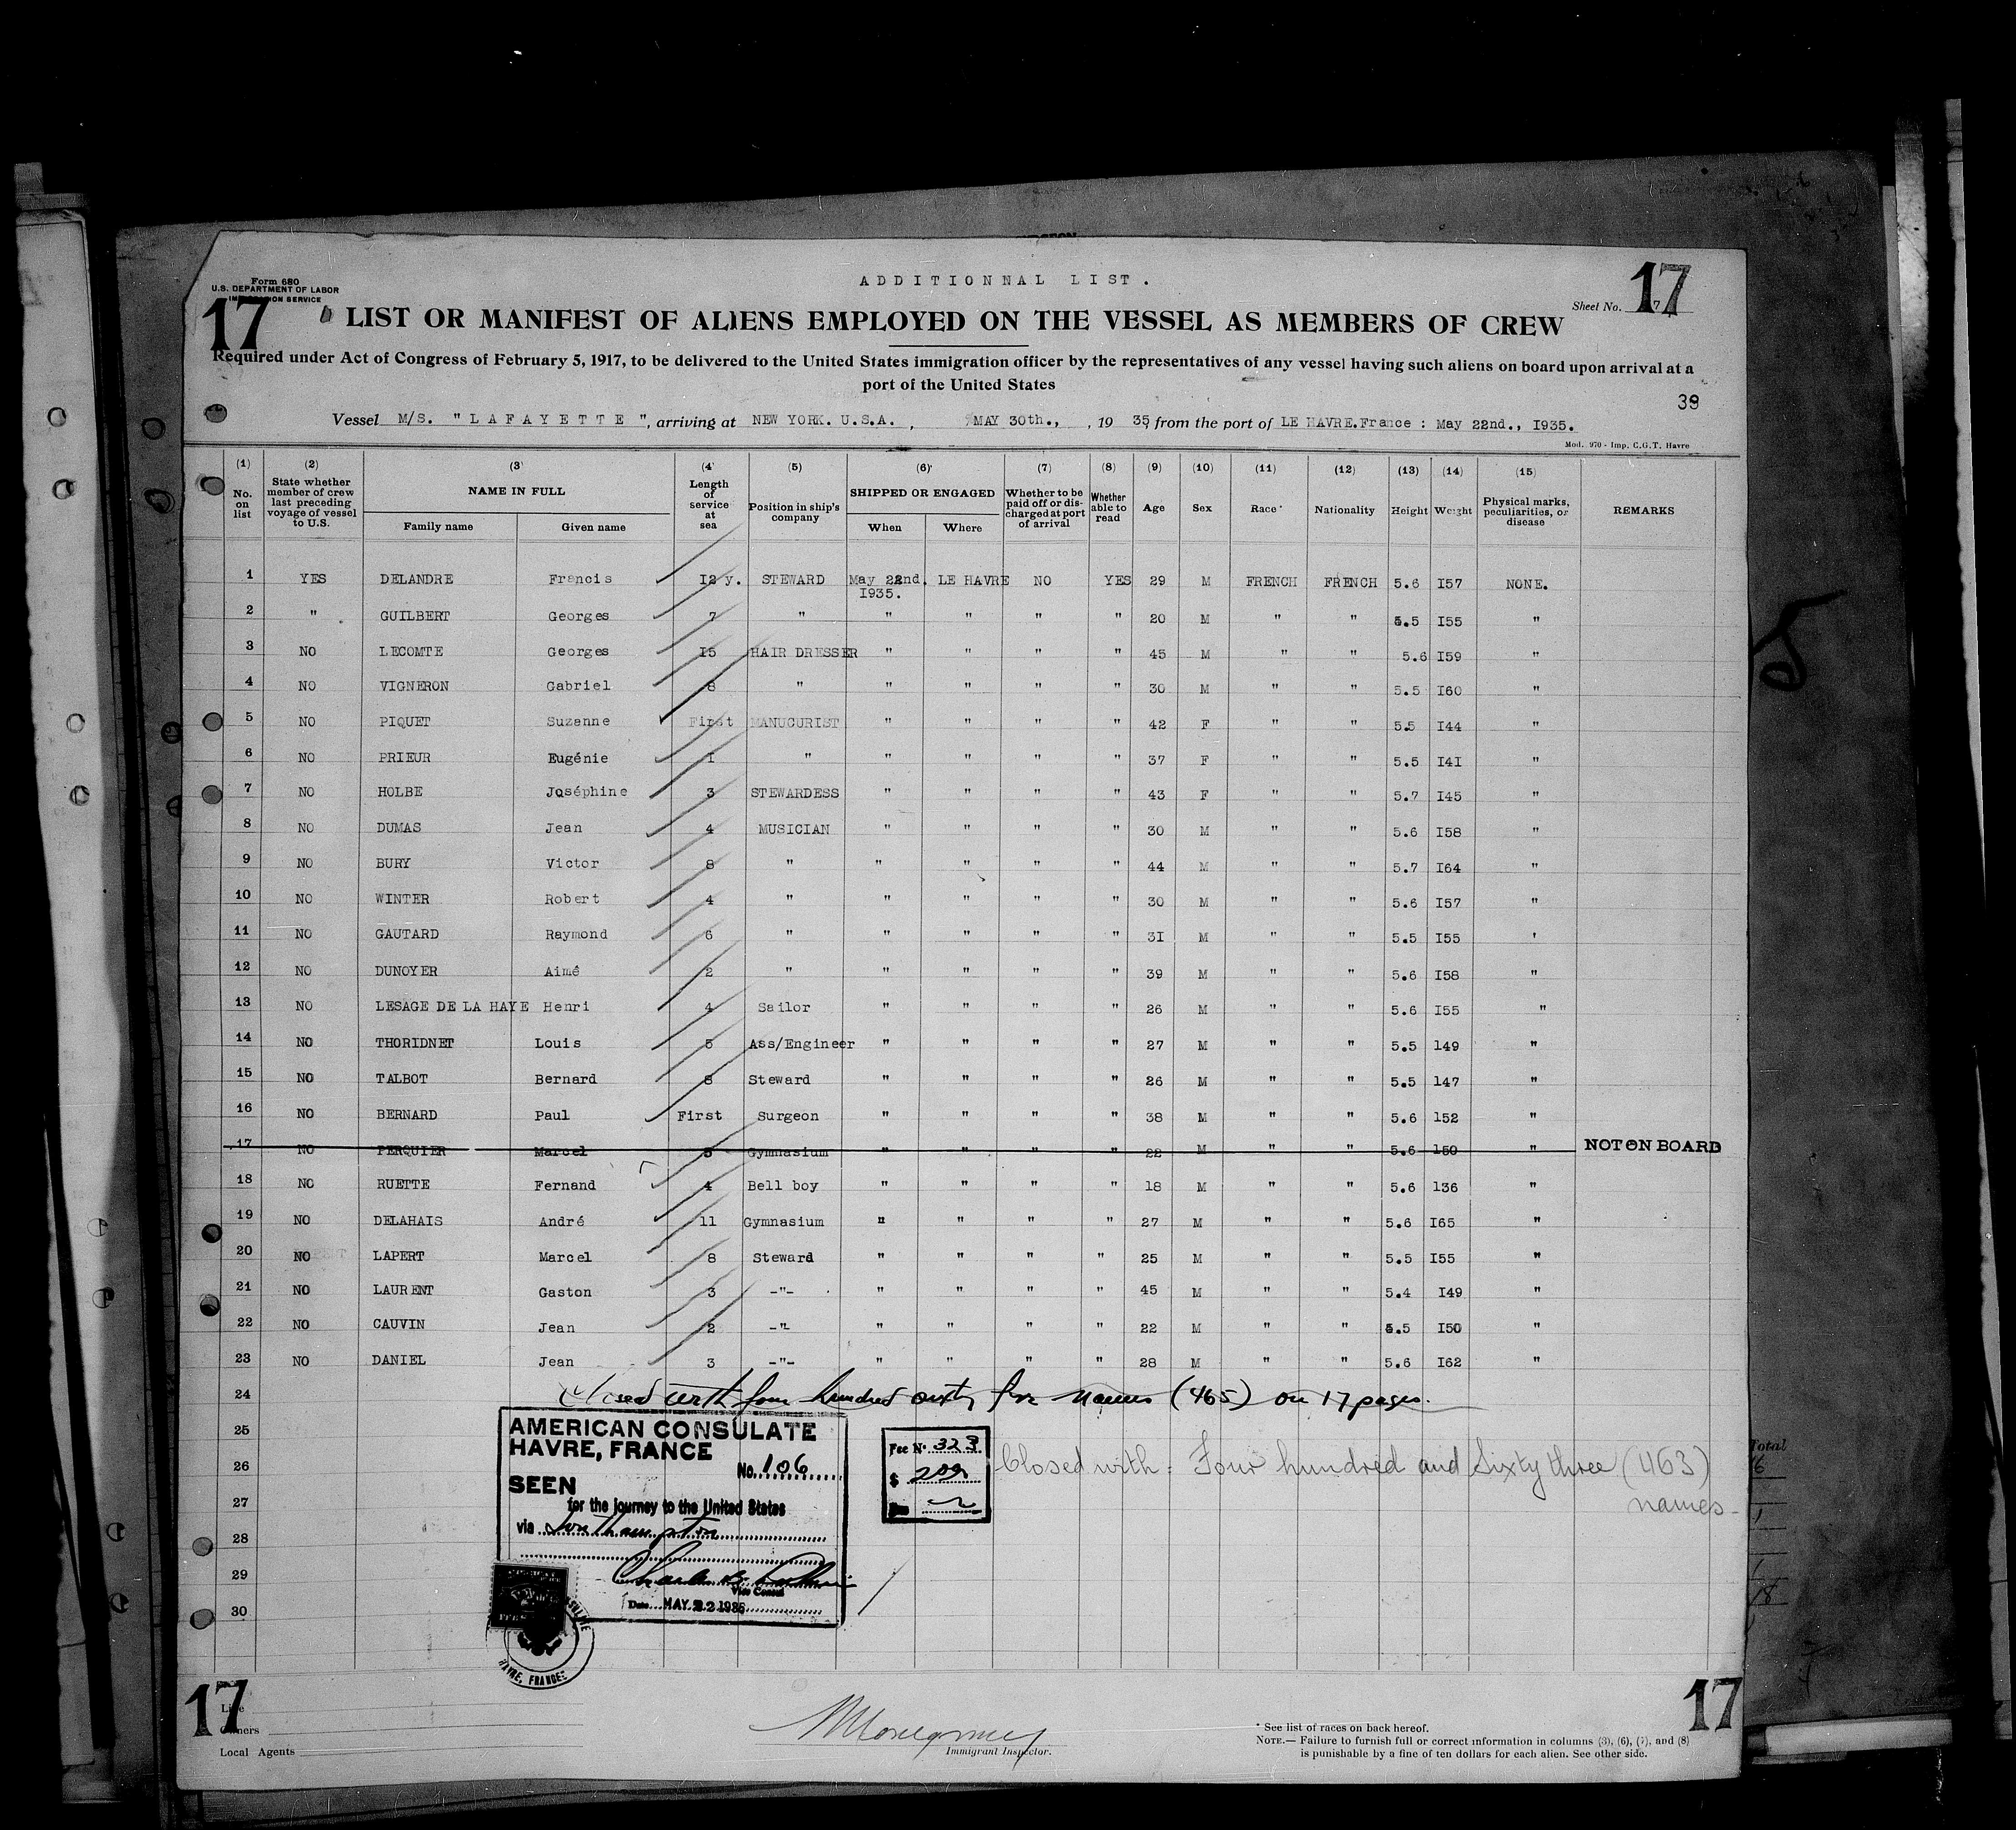 Form 680
U.S. DEPARTMENT OF LABOR
IMMIGRATION SERVICE
17
ADDITIONNAL LIST.
Sheet No. 17
LIST OR MANIFEST OF ALIENS EMPLOYED ON THE VESSEL AS MEMBERS OF CREW
Required under Act of Congress of February 5, 1917, to be delivered to the United States immigration officer by the representatives of any vessel having such aliens on board upon arrival at a
port of the United States
39
Vessel M/S. "LAFAYETTE", arriving at NEW YORK. U.S.A., MAY 30th., , 19 35 from the port of LE HAVRE.France : May 22nd., I935.
Mod. 970 - Imp. C.G.T. Havre
(1) No. on list (2) State whether member of crew last preceding voyage of vessel to U.S. (3) NAME IN FULL Family name Given name (4) Length of service at sea (5) Position in ship's company (6) SHIPPED OR ENGAGED When Where (7) Whether to be paid off or discharged at port of arrival (8) Whether able to read (9) Age (10) Sex (11) Race* (12) Nationality (13) Height (14) Weight (15) Physical marks, peculiarities, or disease REMARKS
1 YES DELANDRE Francis I2 y. STEWARD May 22nd. I935. LE HAVRE NO YES 29 M FRENCH FRENCH 5.6 I57 NONE.
2 " GUILBERT Georges 7 " " " " " 20 M " " 5.5 I55 "
3 NO LECOMTE Georges I5 HAIR DRESSER " " " " 45 M " " 5.6 I59 "
4 NO VIGNERON Gabriel 8 " " " " " 30 M " " 5.5 I60 "
5 NO PIQUET Suzanne First MANUCURIST " " " " 42 F " " 5.5 I44 "
6 NO PRIEUR Eugénie I " " " " " 37 F " " 5.5 I4I "
7 NO HOLBE Joséphine 3 STEWARDESS " " " " 43 F " " 5.7 I45 "
8 NO DUMAS Jean 4 MUSICIAN " " " " 30 M " " 5.6 I58 "
9 NO BURY Victor 8 " " " " " 44 M " " 5.7 I64 "
10 NO WINTER Robert 4 " " " " " 30 M " " 5.6 I57 "
11 NO GAUTARD Raymond 6 " " " " " 3I M " " 5.5 I55 '
12 NO DUNOYER Aimé 2 " " " " " 39 M " " 5.6 I58 "
13 NO LESAGE DE LA HAYE Henri 4 Sailor " " " " 26 M " " 5.6 I55 "
14 NO THORIDNET Louis 5 Ass/Engineer " " " " 27 M " " 5.5 149 "
15 NO TALBOT Bernard 8 Steward " " " " 26 M " " 5.5 147 "
16 NO BERNARD Paul First Surgeon " " " " 38 M " " 5.6 152 "
17 NO PERQUIER Marcel 5 Gymnasium " " " " 22 M " " 5.6 150 " NOT ON BOARD
18 NO RUETTE Fernand 4 Bell boy " " " " 18 M " " 5.6 136 "
19 NO DELAHAIS André 11 Gymnasium " " " " 27 M " " 5.6 I65 "
20 NO LAPERT Marcel 8 Steward " " " " 25 M " " 5.5 I55 "
21 NO LAURENT Gaston 3 -"- " " " " 45 M " " 5.4 I49 "
22 NO CAUVIN Jean 2 -"- " " " " 22 M " " 5.5 I50 "
23 NO DANIEL Jean 3 -"- " " " " 28 M " " 5.6 I62 "
24 Closed with four hundred sixty five names (465) on 17 pages.
25
26 Closed with : Four hundred and Sixty three (463)
27 names-
28
29
30
AMERICAN CONSULATE
HAVRE, FRANCE
No. 106
SEEN
for the journey to the United States
via Southampton
Vice Consul
Date MAY 22 1935
Fee No 323
$
HAVRE, FRANCE
17
Line
Owners
Local Agents
Immigrant Inspector.
* See list of races on back hereof.
NOTE.— Failure to furnish full or correct information in columns (3), (6), (7), and (8)
is punishable by a fine of ten dollars for each alien. See other side.
17
Total